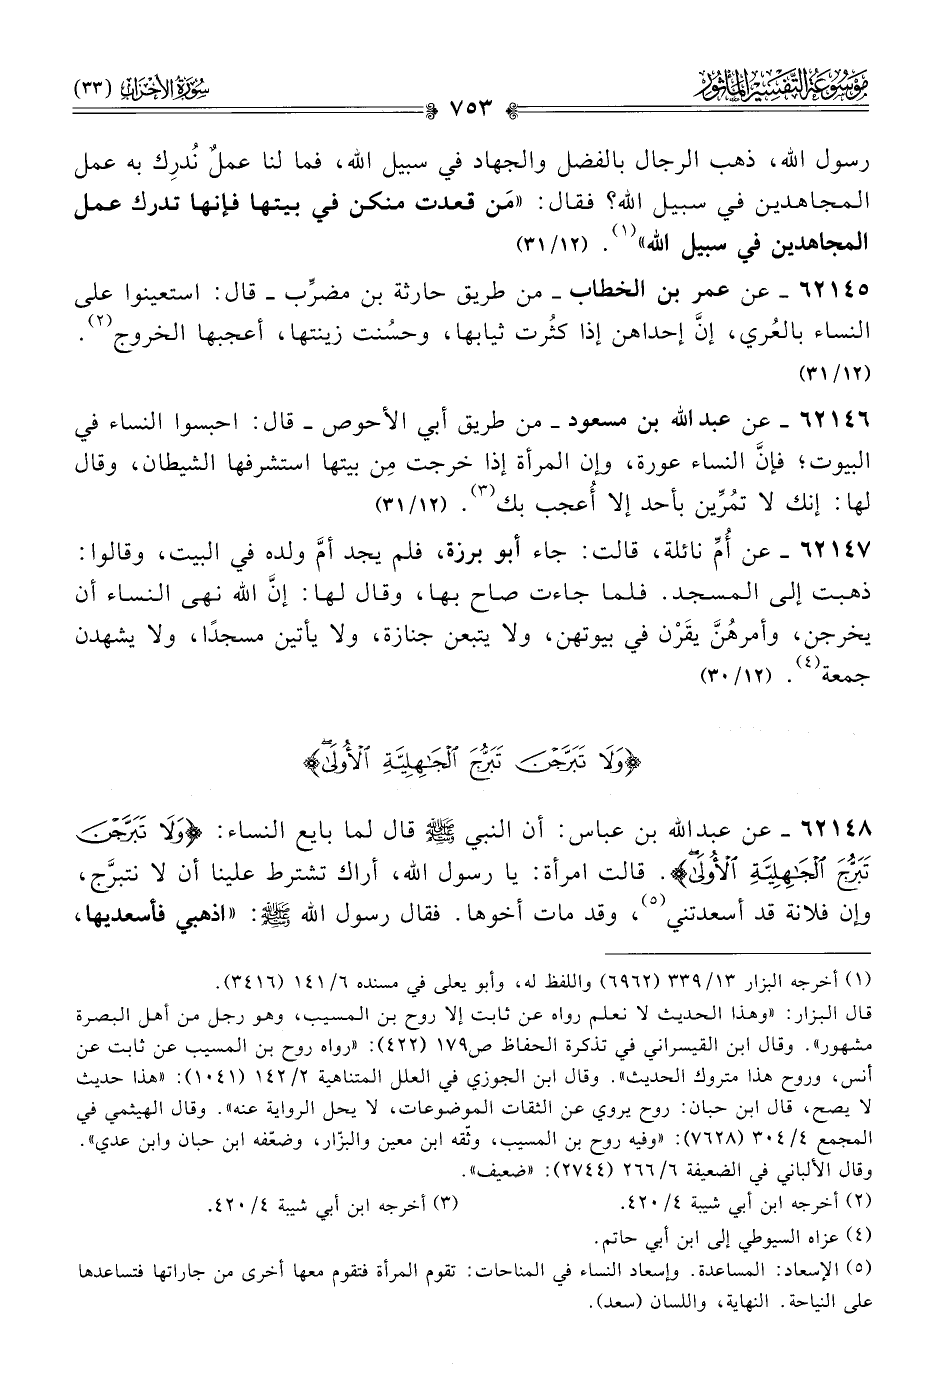 مَوْسُوعَةُ التَّفْسِيرِ المَأْثُور
سُورَةُ الأَحْزَابِ (٣٣)
٧٥٣
رسول الله، ذهب الرجال بالفضل والجهاد في سبيل الله، فما لنا عملٌ نُدرِك به عمل
المجاهدين في سبيل الله؟ فقال: «مَن قعدت منكن في بيتها فإنها تدرك عمل
المجاهدين في سبيل الله»(١). (٣١/١٢)
٦٢١٤٥ ـ عن عمر بن الخطاب ـ من طريق حارثة بن مضرِّب ـ قال: استعينوا على
النساء بالعُري، إنَّ إحداهن إذا كثُرت ثيابها، وحسُنت زينتها، أعجبها الخروج(٢).
(٣١/١٢)
٦٢١٤٦ ـ عن عبد الله بن مسعود ـ من طريق أبي الأحوص ـ قال: احبسوا النساء في
البيوت؛ فإنَّ النساء عورة، وإن المرأة إذا خرجت مِن بيتها استشرفها الشيطان، وقال
لها: إنك لا تمُرِّين بأحد إلا أُعجب بك(٣). (٣١/١٢)
٦٢١٤٧ ـ عن أُمِّ نائلة، قالت: جاء أبو برزة، فلم يجد أمَّ ولده في البيت، وقالوا:
ذهبت إلى المسجد. فلما جاءت صاح بها، وقال لها: إنَّ الله نهى النساء أن
يخرجن، وأمرهُنَّ يقَرْن في بيوتهن، ولا يتبعن جنازة، ولا يأتين مسجدًا، ولا يشهدن
جمعة(٤). (٣٠/١٢)
﴿وَلَا تَبَرَّجْنَ تَبَرُّجَ ٱلْجَٰهِلِيَّةِ ٱلْأُولَىٰۖ﴾
٦٢١٤٨ ـ عن عبد الله بن عباس: أن النبي ﷺ قال لما بايع النساء: ﴿وَلَا تَبَرَّجْنَ
تَبَرُّجَ ٱلْجَٰهِلِيَّةِ ٱلْأُولَىٰۖ﴾. قالت امرأة: يا رسول الله، أراك تشترط علينا أن لا نتبرَّج،
وإن فلانة قد أسعدتني(٥)، وقد مات أخوها. فقال رسول الله ﷺ: «اذهبي فأسعديها،
(١) أخرجه البزار ٣٣٩/١٣ (٦٩٦٢) واللفظ له، وأبو يعلى في مسنده ١٤١/٦ (٣٤١٦).
قال البزار: «وهذا الحديث لا نعلم رواه عن ثابت إلا روح بن المسيب، وهو رجل من أهل البصرة
مشهور». وقال ابن القيسراني في تذكرة الحفاظ ص١٧٩ (٤٢٢): «رواه روح بن المسيب عن ثابت عن
أنس، وروح هذا متروك الحديث». وقال ابن الجوزي في العلل المتناهية ١٤٢/٢ (١٠٤١): «هذا حديث
لا يصح، قال ابن حبان: روح يروي عن الثقات الموضوعات، لا يحل الرواية عنه». وقال الهيثمي في
المجمع ٣٠٤/٤ (٧٦٢٨): «وفيه روح بن المسيب، وثّقه ابن معين والبزار، وضعّفه ابن حبان وابن عدي».
وقال الألباني في الضعيفة ٢٦٦/٦ (٢٧٤٤): «ضعيف».
(٢) أخرجه ابن أبي شيبة ٤٢٠/٤. (٣) أخرجه ابن أبي شيبة ٤٢٠/٤.
(٤) عزاه السيوطي إلى ابن أبي حاتم.
(٥) الإسعاد: المساعدة. وإسعاد النساء في المناحات: تقوم المرأة فتقوم معها أخرى من جاراتها فتساعدها
على النياحة. النهاية، واللسان (سعد).